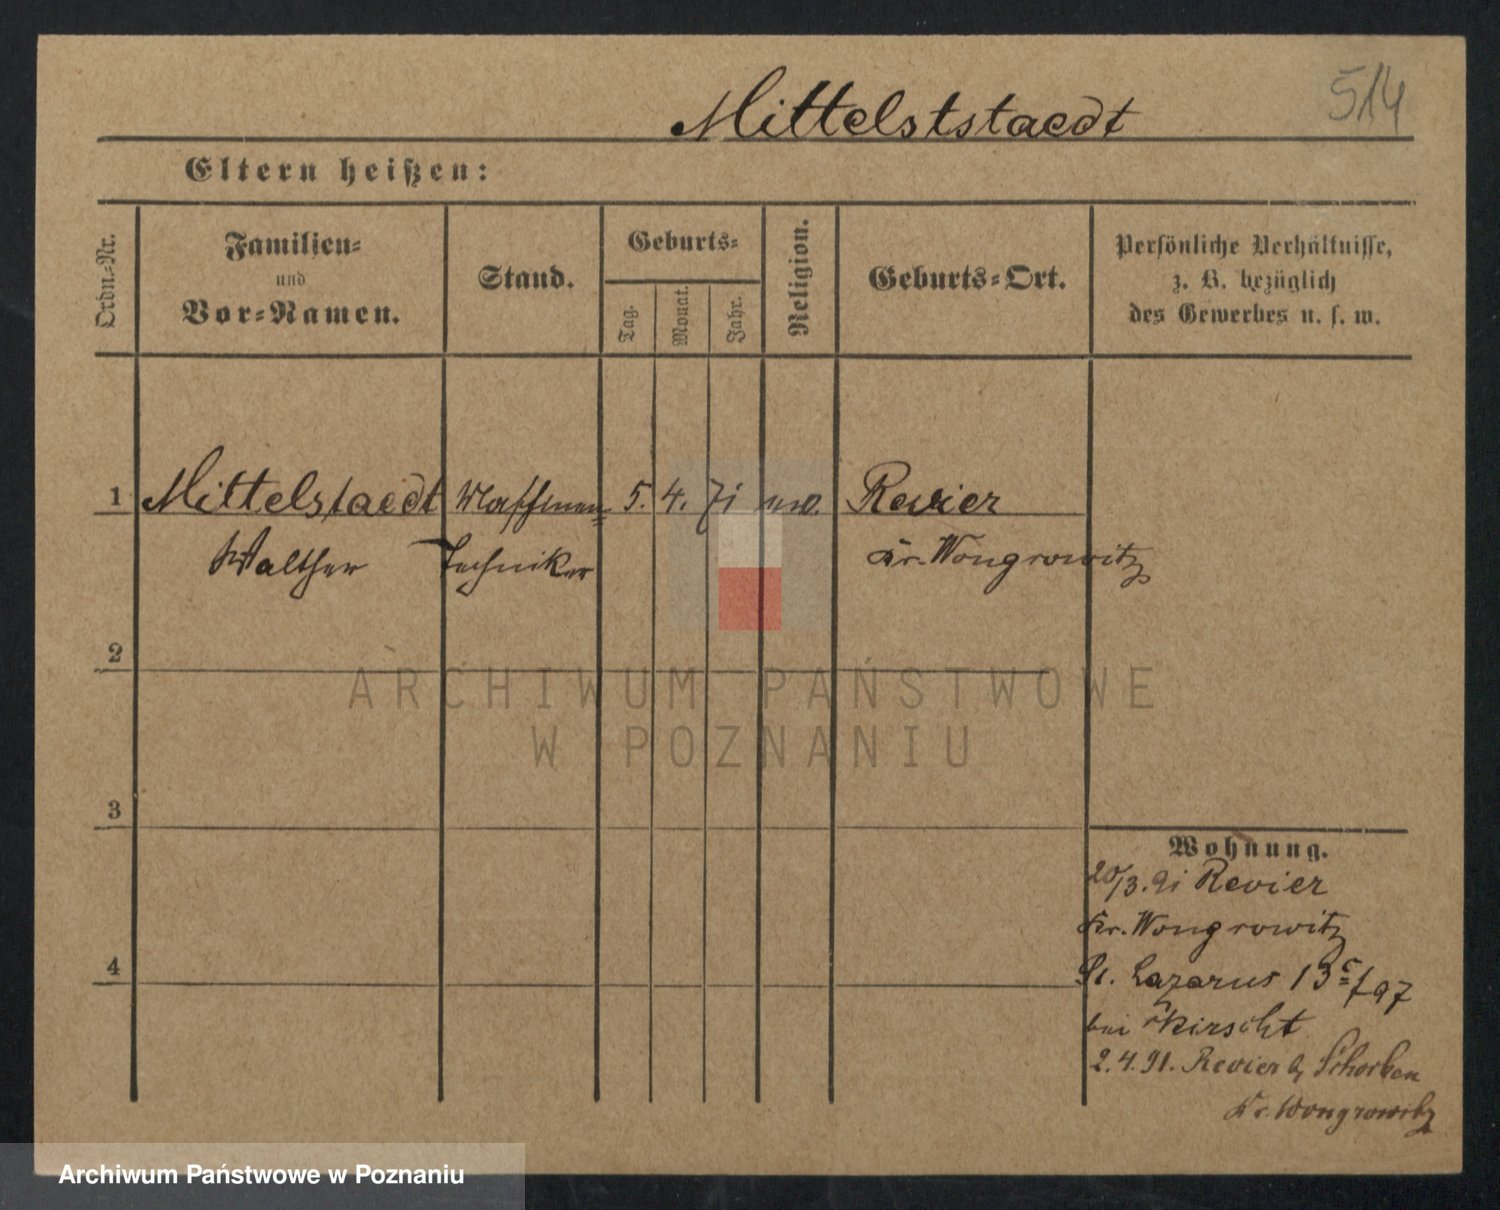 514
Mittelststaedt
Eltern heißen:
Ordn.-Nr.
Familien-
und
Vor-Namen.
Stand.
Geburts-
Tag.
Monat.
Jahr.
Religion.
Geburts-Ort.
Persönliche Verhältnisse,
z. B. bezüglich
des Gewerbes u. s. w.
1 Mittelstaedt 5. 4. 71 Revier
Walther Techniker Kr. Wongrowitz
2
3
4
Wohnung.
20/3.91 Revier
Kr. Wongrowitz
St. Lazarus 13
bei Kirscht
2.4.91. Revier
Kr. Wongrowitz
ARCHIWUM PAŃSTWOWE
W POZNANIU
Archiwum Państwowe w Poznaniu